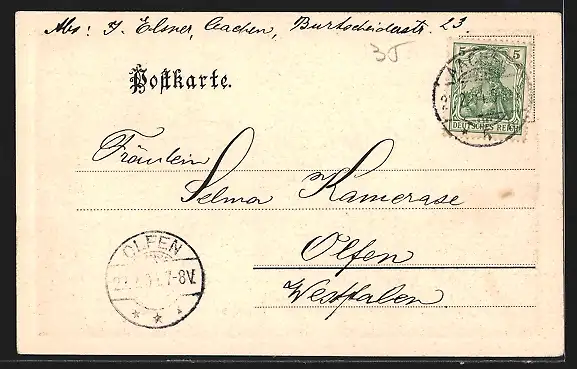 Abs: J. Elsner, Aachen, Burtscheiderstr. 23.
35
Postkarte.
5 5
AACHEN
DEUTSCHES REICH
Fräulein
Selma Kamerase
Olfen
Westfalen
OLFEN
7-8V.